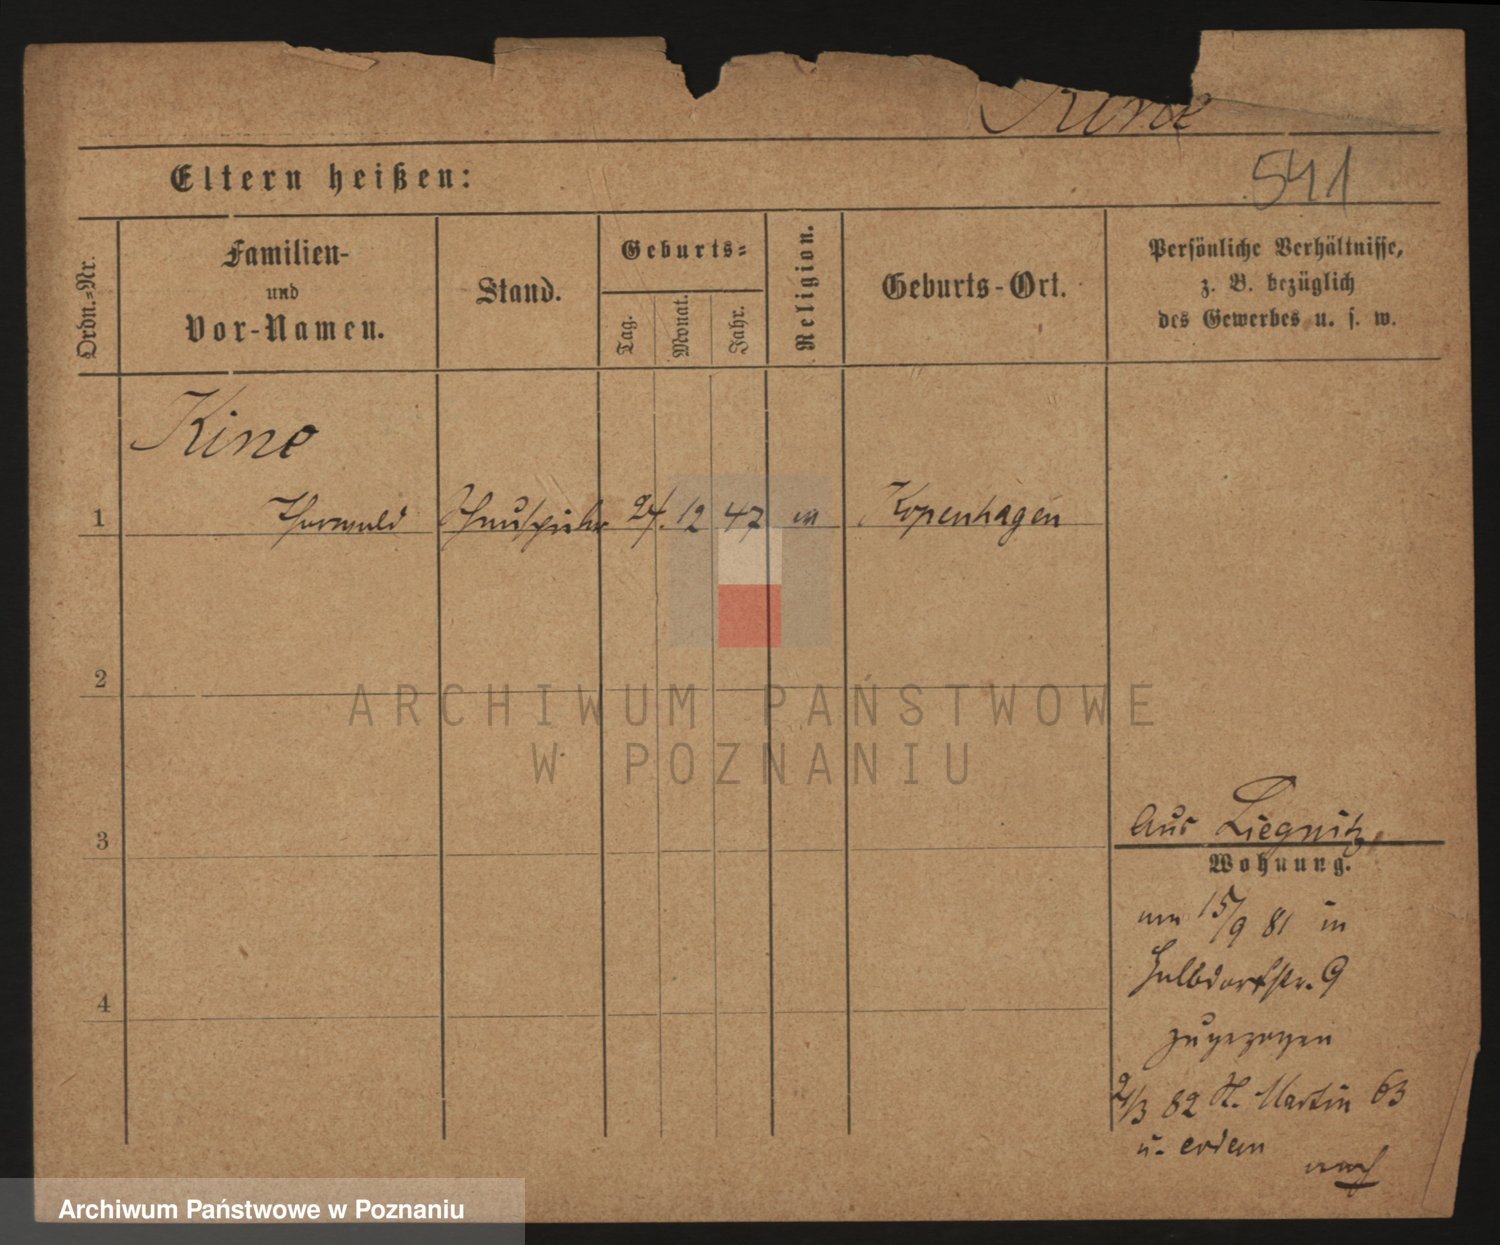 Kine
541
Eltern heißen:
Ordn.-Nr.
Familien-
und
Vor-Namen.
Stand.
Geburts-
Tag.
Monat.
Jahr.
Religion.
Geburts-Ort.
Persönliche Verhältnisse,
z. B. bezüglich
des Gewerbes u. s. w.
Kine
1 Thorwald Schauspieler 24. 12 47 Kopenhagen
2
3
4
Aus Liegnitz
Wohnung.
am 15/9 81 in
Halbdorfstr. 9
zugezogen
2/3 82 St. Martin 63
u.
ARCHIWUM PAŃSTWOWE
W POZNANIU
Archiwum Państwowe w Poznaniu